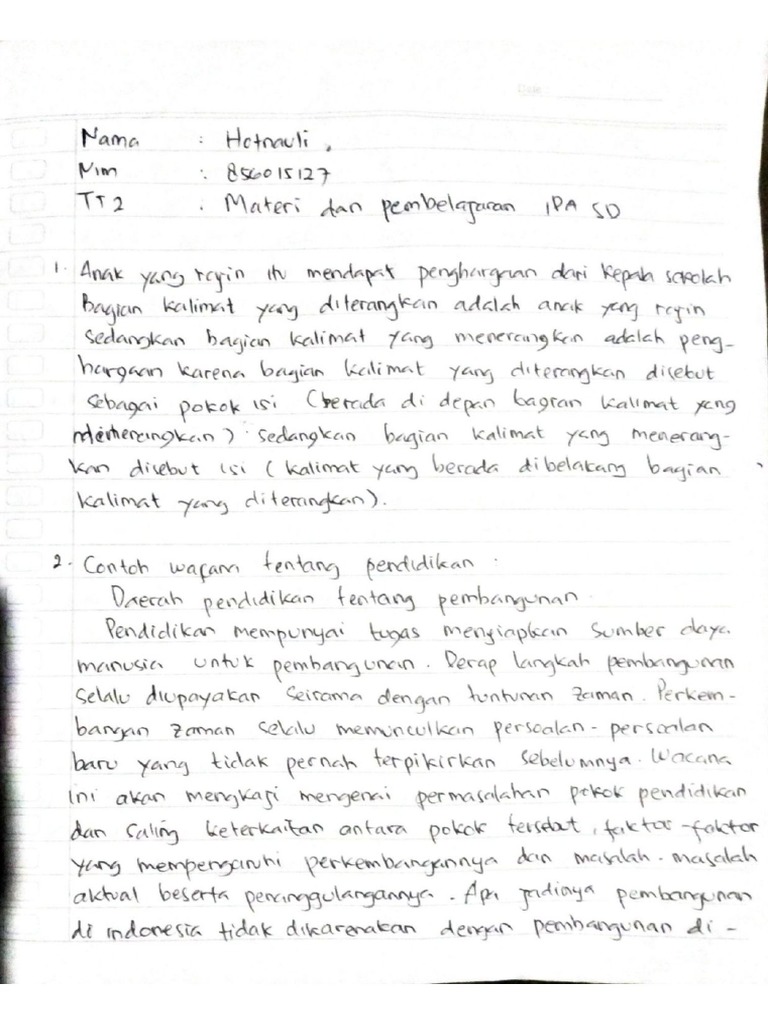 Date :
Nama : Hotnauli .
Nim : 856015127
TT 2 . Materi dan pembelajaran IPA SD
1. Anak yang rajin itu mendapat penghargaan dari kepala sekolah
Bagian kalimat yang diterangkan adalah anak yang rajin
sedangkan bagian kalimat yang menerangkan adalah peng-
hargaan karena bagian kalimat yang diterangkan disebut
sebagai pokok isi (berada di depan bagian kalimat yang
menerangkan) sedangkan bagian kalimat yang menerang-
kan disebut isi (kalimat yang berada dibelakang bagian
kalimat yang diterangkan).
2. Contoh wacana tentang pendidikan :
Daerah pendidikan tentang pembangunan.
Pendidikan mempunyai tugas menyiapkan sumber daya
manusia untuk pembangunan. Derap langkah pembangunan
selalu diupayakan seirama dengan tuntunan zaman. Perkem-
bangan zaman selalu memunculkan persoalan-persoalan
baru yang tidak pernah terpikirkan sebelumnya. Wacana
ini akan mengkaji mengenai permasalahan pokok pendidikan
dan saling keterkaitan antara pokok tersebut, faktor-faktor
yang mempengaruhi perkembangannya dan masalah-masalah
aktual beserta penanggulangannya. Apa jadinya pembangunan
di indonesia tidak dikarenakan dengan pembangunan di-